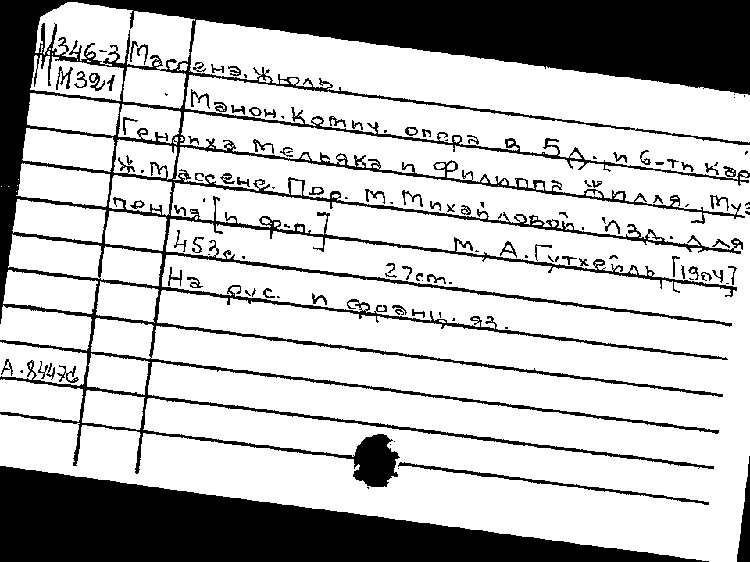 М346-3 Массена, Жюль.
М391
Манон. Комич. опера в 5 д. и 6-ти кар
Генриха Мельяка и Филиппа Жилля. Муз
Ж. Массене. Пер. М. Михайловой. Изд. для
пения [и ф-п.] М., А. Гутхейль, [1904]
453с. 27см.
На рус. и франц. яз.
А.8447д